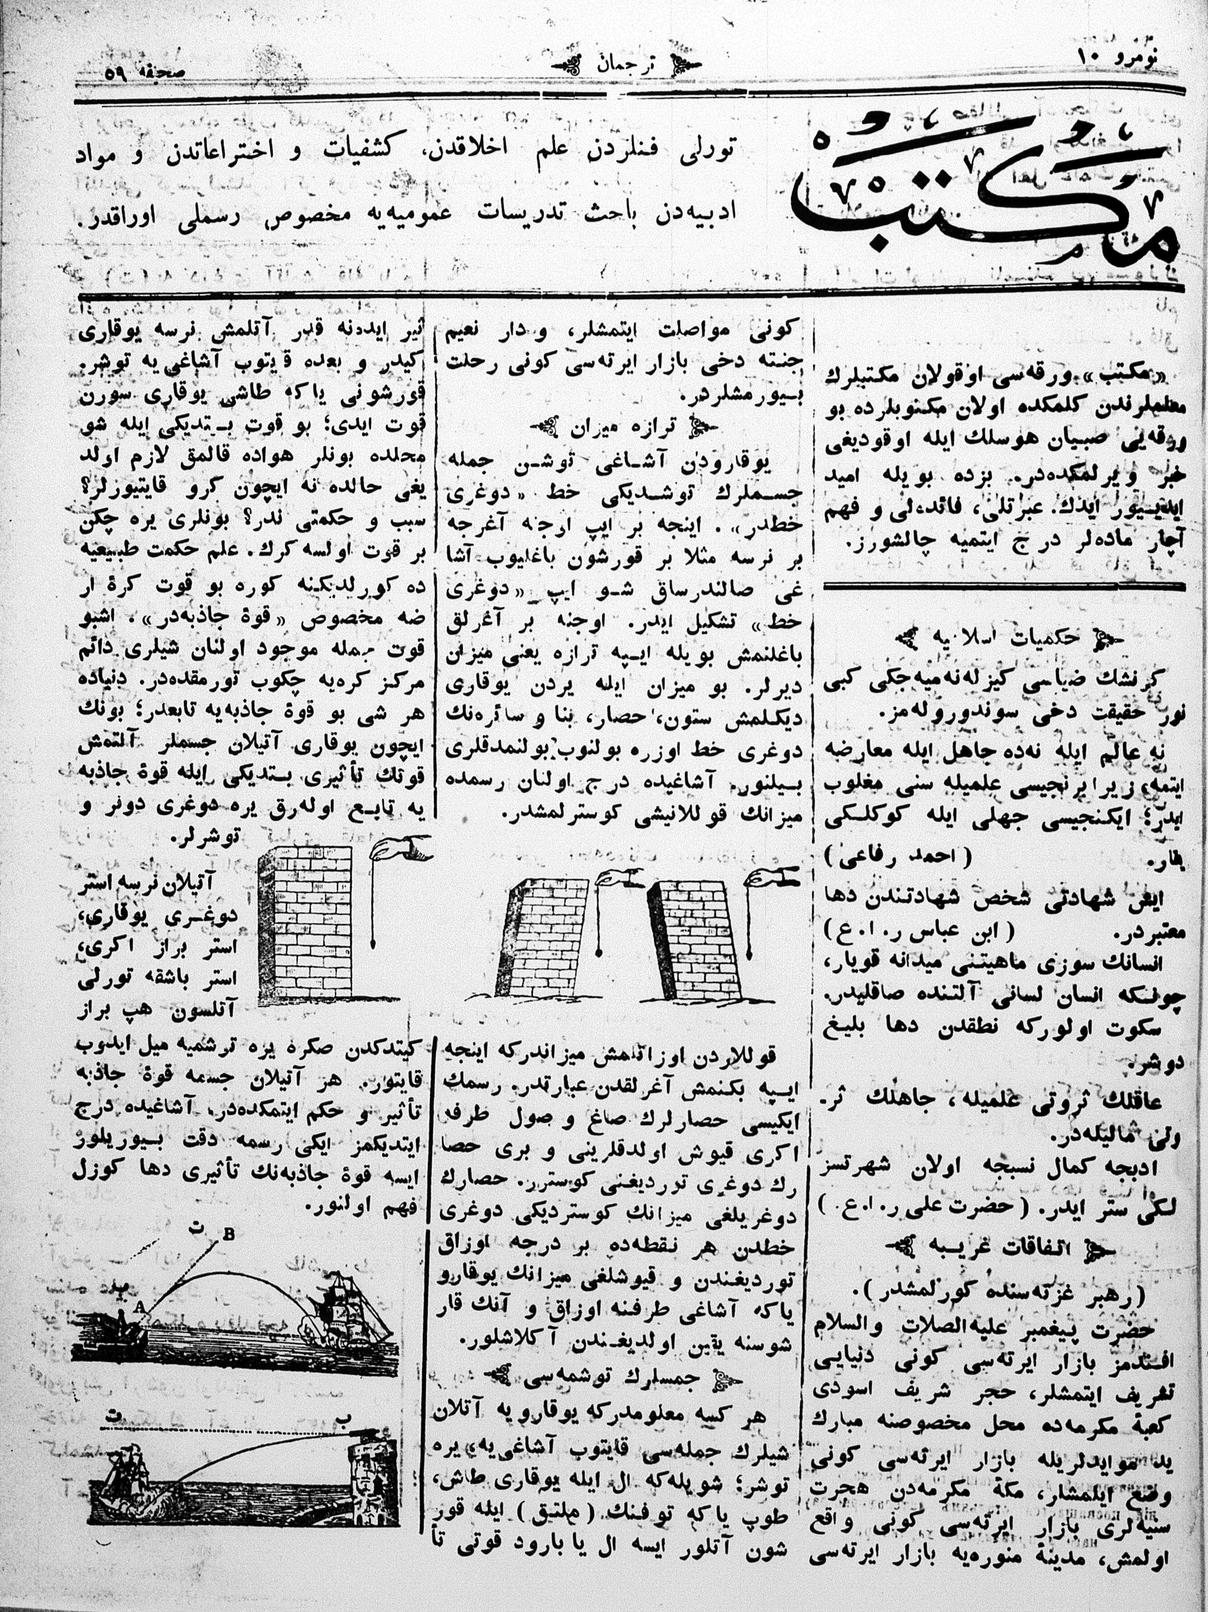 نومرو ١٠
ترجمان
صحيفه ٥٩
مكتب
تورلى فنلردن علم اخلاقدن، كشفيات و اختراعاتدن و مواد
ادبيه‌دن باحث تدريسات عموميه‌يه مخصوص رسملى اوراقدر.
«مكتب» ورقه‌سى اوقولان مكتبلرك
معلملرندن كلمكده اولان مكتوبلرده بو
ورقه‌يى صبيان هوسلك ايله اوقوديغى
خبر ويرلمكده‌در. بزده بويله اميد
ايديــيور ايدك. عبرتلى، فائده‌لى و فهم
آچار ماده‌لر درج ايتميه چالشورز.
حكميات اسلاميه
كونشك ضياسى كيزله‌نه‌ميه‌جكى كبى
نور حقيقت دخى سوندورولەمز.
نه عالم ايله نه‌ده جاهل ايله معارضه
ايتمه، زيرا برنجيسى علميله سنى مغلوب
ايدر؛ ايكنجيسى جهلى ايله كوكلـكى
يقار. (احمد رفاعى)
ايش شهادتى شخص شهادتندن دها
معتبردر. (ابن عباس ر. ا. ع)
انسانك سوزى ماهيتنى ميدانه قويار،
چونـكه انسان لسانى آلتنده صاقليدر.
سكوت اولوركه نطقدن دها بليغ
دوشر.
عاقلك ثروتى علميله، جاهلك ثر-
وتى ماليله‌در.
ادبجه كمال نسبجه اولان شهرتسز
لـكى ستر ايدر. (حضرت على ر. ا. ع.)
اتفاقات غريـبه
(رهبر غزته‌سنده كورلمشدر).
حضرت پيغمبر عليه‌الصلات والسلام
افـندمز بازار ايرته‌سى كونى دنيايى
تشريف ايتمشلر، حجر شريف اسودى
كعبهٔ مكرمه‌ده محل مخصوصنه مبارك
يد مؤيدلريله بازار ايرته‌سى كونى
وضع ايلمشلر، مكهٔ مكرمه‌دن هجرت
سنيه‌لرى بازار ايرته‌سى كونى واقع
اولمش، مدينهٔ منوره‌يه بازار ايرته‌سى
كونى مواصلت ايتمشلر، و دار نعيم
جنته دخى بازار ايرته‌سى كونى رحلت
بـيورمشلردر.
ترازه ميزان
يوقارودن آشاغى توشـن جمله
جسـملرك توشـديكى خط «دوغرى
خطدر». اينجه بر ايپ اوجنه آغرجه
بر نرسه مثلا بر قورشون باغليوب آشا
غى صالندرساق شـو ايپ «دوغرى
خط» تشكيل ايدر. اوجنه بر آغرلق
باغلنمش بويله ايـپه ترازه يعنى ميزان
ديرلر. بو ميزان ايله يردن يوقارى
ديكـلمش ستون، حصار، بنا و سائره‌نك
دوغرى خط اوزره بولنوب بولنمدقلرى
بـيلنور. آشاغيده درج اولنان رسمده
ميزانك قوللانيشى كوسترلمشدر.
قوللاردن اوزاتلمش ميزاندركه اينجه
ايـپه بكنمش آغرلقدن عبارتدر. رسمك
ايكيسى حصارلرك صاغ و صول طرفه
اكرى قيوش اولدقلرينى و برى حصا
رك دوغرى تورديغنى كوسترر. حصارك
دوغريلغى ميزانك كوسترديكى دوغرى
خطدن هر نـقطه‌ده بر درجه اوزاق
تورديغندن و قيوشلغى ميزانك يوقارو
ياكه آشاغى طرفنه اوزاق و آنك قار
شوسنه يقين اولديغـندن آكلاشلور.
جمسلرك توشمه‌سى
هر كسه معلومدركه يوقارويه آتلان
شيلرك جمله‌سى قايتوب آشاغى‌يه، يره
توشر؛ شويله‌كه ال ايله يوقارى طاش،
طوپ ياكه توفنك (ملتيق) ايله قور
شون آتلور ايسه ال يا بارود قوتى تأ
ثير ايده‌نه قدر آتلمش نرسه يوقارى
كيدر و بعده قـيتوب آشاغى‌يه توشر.
قورشونى ياكه طاشى يوقارى سورن
قوت ايدى؛ بو قوت بـتديكى ايله شو
محلده بونلر هواده قالمق لازم اولد
يغى حالده نه ايچون كرو قايتيورلر؟
سبب و حكمتى ندر؟ بونلرى يره چكن
بر قوت اولسه كرك. علم حكمت طبيعيه
ده كورلديكنه كوره بو قوت كرهٔ ار
ضه مخصوص «قوهٔ جاذبه‌در»، اشبو
قوت جمله موجود اولنان شيلرى دائم
مركز كره‌يه چكوب تورمقده‌در. دنياده
هر شى بو قوهٔ جاذبه‌يه تابعدر؛ بونك
ايچون يوقارى آتيلان جسملر آلتمش
قوتك تأثيرى بـتديكى ايله قوهٔ جاذبه
يه تابـع اوله‌رق يره دوغرى دونر و
توشرلر.
آتيلان نرسه استر
دوغـرى يوقارى،
استر براز اكرى،
استر باشقه تورلى
آتلسون هپ براز
كيتدكدن صكره يره ترشميه ميل ايدوب
قايتور. هر آتيلان جسمه قوهٔ جاذبه
تأثير و حكم ايتمكده‌در. آشاغيده درج
ايتديكمز ايكى رسمه دقت بـيوريلور
ايسه قوهٔ جاذبه‌نك تأثيرى دها كوزل
فهم اولنور.
ت B
A
ب ت